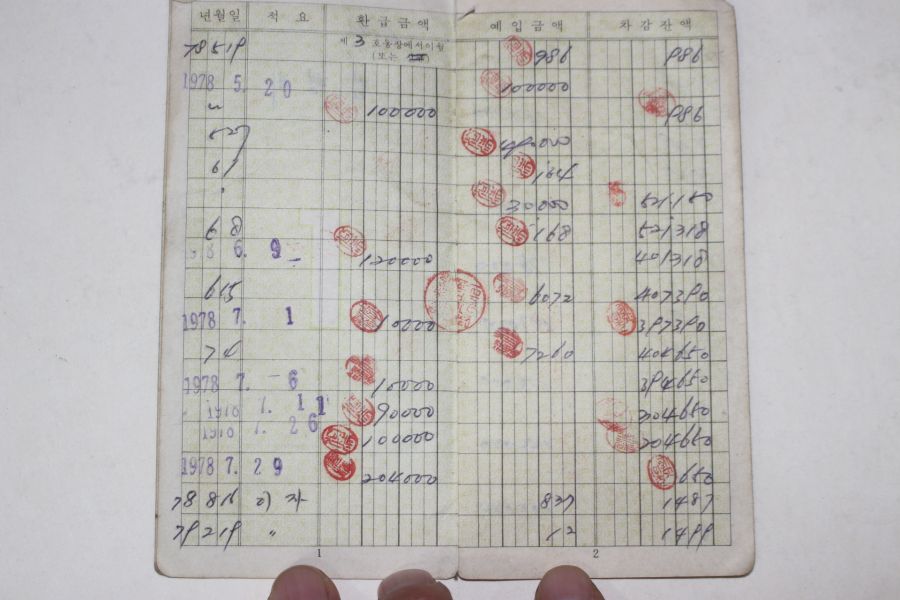 년월일 적요 환급금액 예입금액 차감잔액
제 3 호통장에서이월
(또는
78 5 19 986 986
1978 5. 20 100000
〃 100000 986
5 27
61 164
30000 521150
68 168 521318
1978 6. 9 120000 401318
615 6072 407390
1978 7. 1 10000 397390
74 7260 404650
1978 7. 6 10000 394650
1978 7. 11 90000 304650
1978 7. 26 100000 204650
1978 7. 29 204000 650
78 816 이자 837 1487
79 219 〃 12 1499
1 2